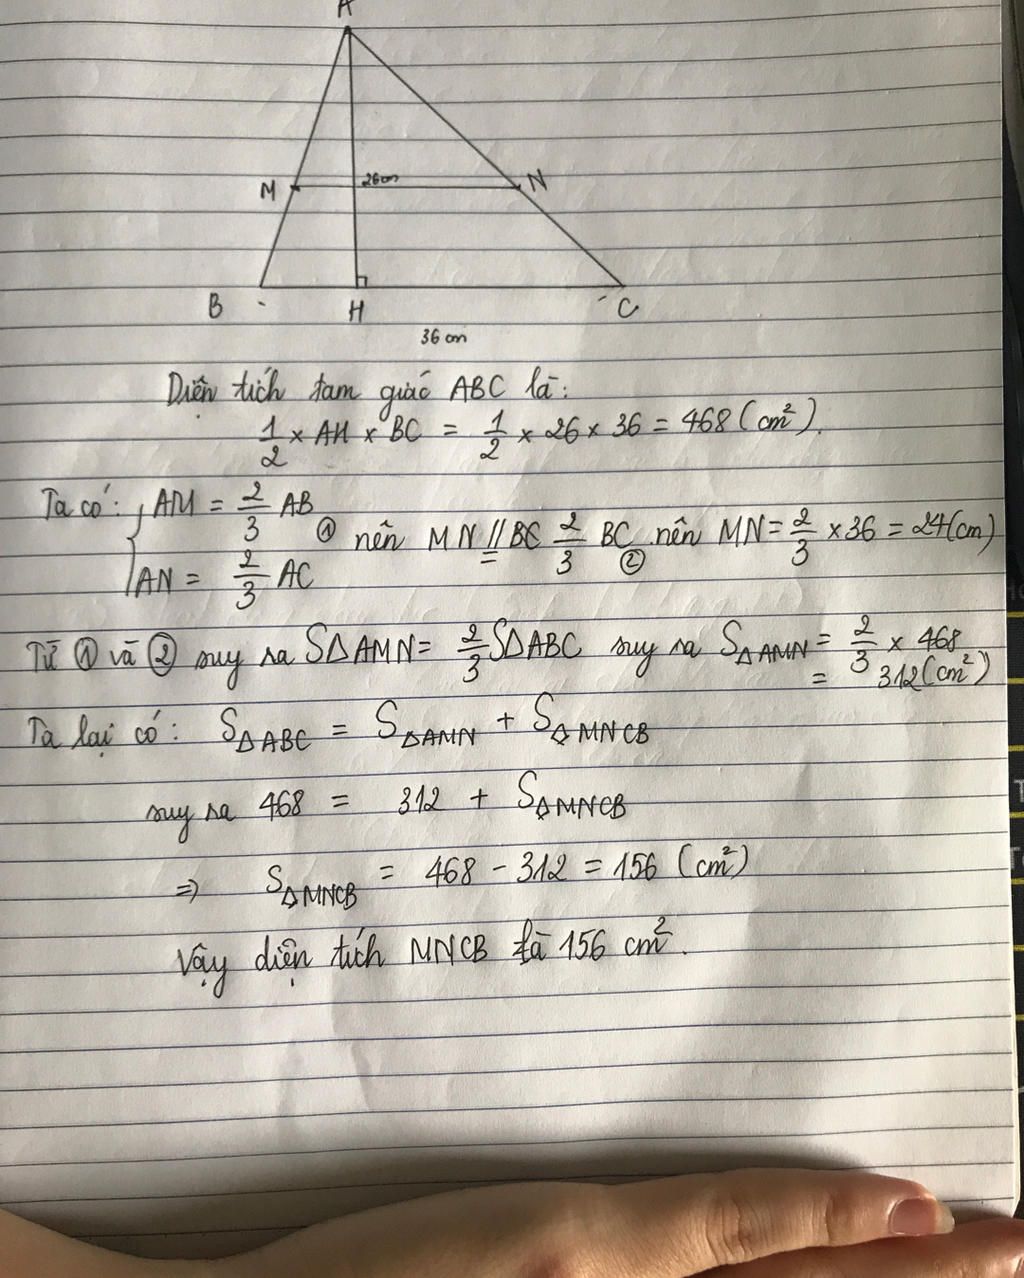 A
M 26cm N
B H C
36 cm
Diện tích tam giác ABC là:
1/2 × AH × BC = 1/2 × 26 × 36 = 468 (cm²).
Ta có: { AM = 2/3 AB
AN = 2/3 AC ① nên MN // = BC 2/3 BC ② nên MN = 2/3 × 36 = 24 (cm)
Từ ① và ② suy ra SΔAMN = 2/3 SΔABC suy ra SΔAMN = 2/3 × 468
= 312 (cm²)
Ta lại có: SΔABC = SΔAMN + SΔMNCB
suy ra 468 = 312 + SΔMNCB
=> SΔMNCB = 468 - 312 = 156 (cm²)
Vậy diện tích MNCB là 156 cm².